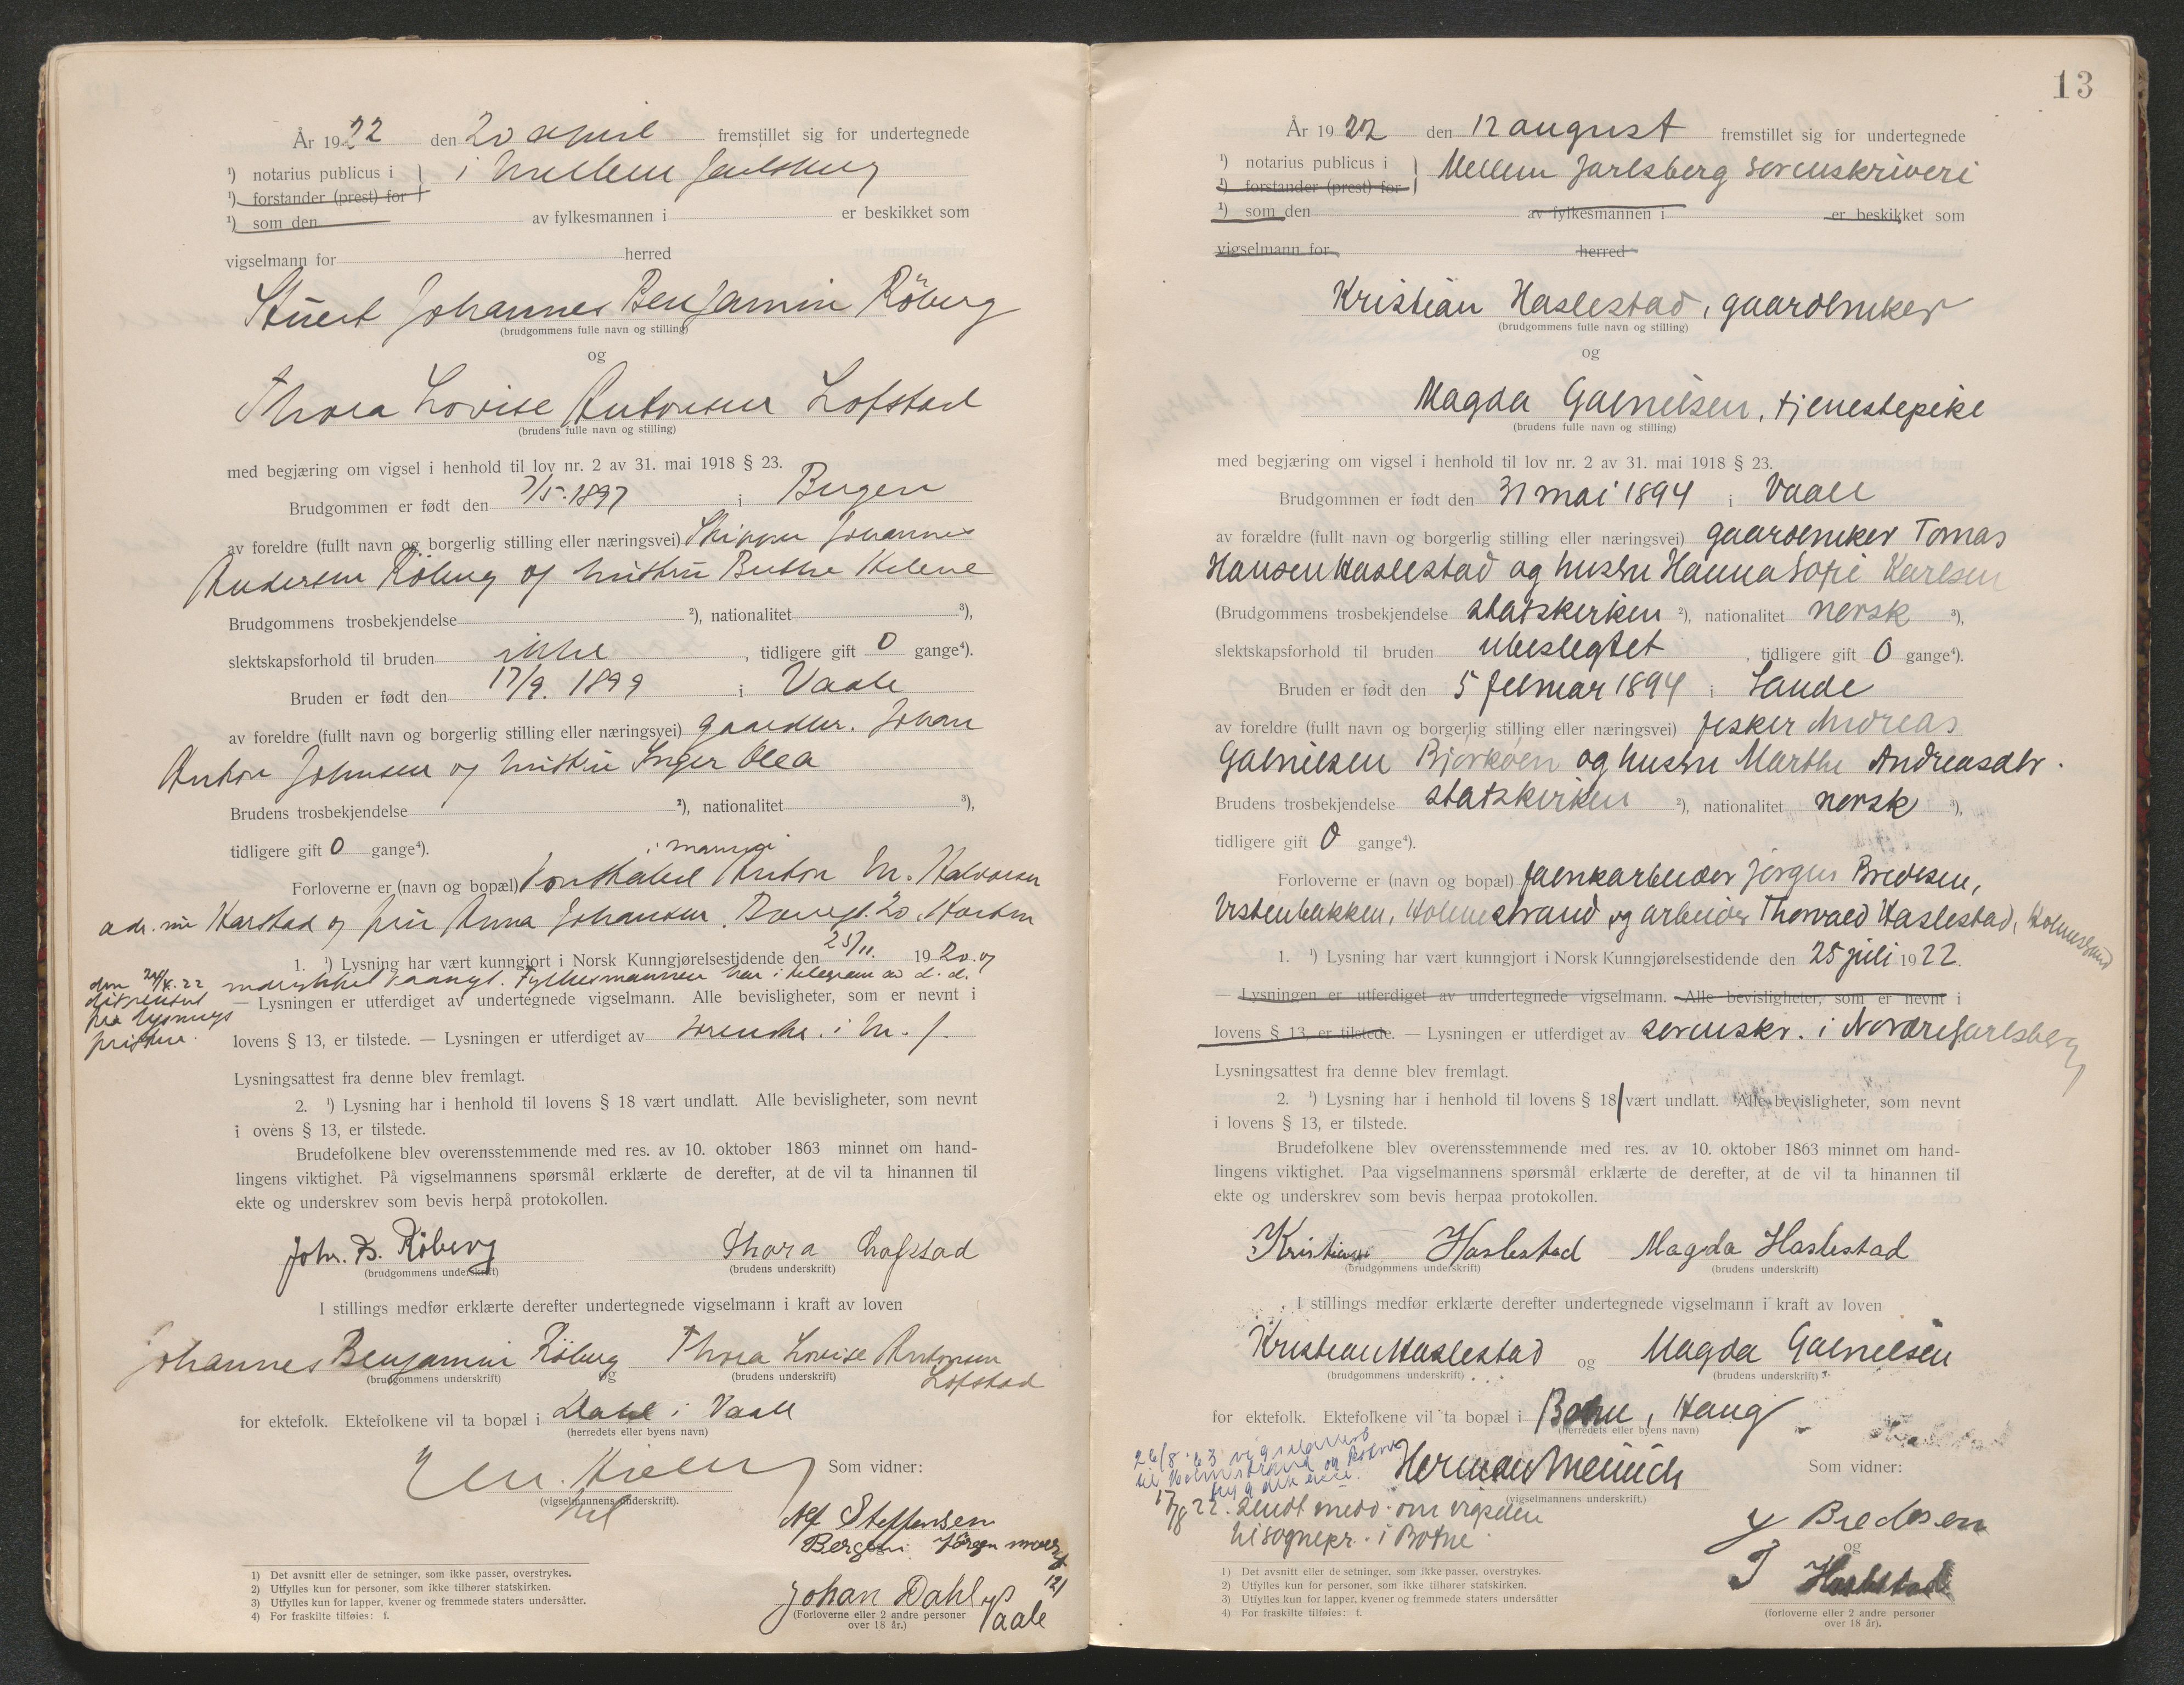 År 1922 den 20 april fremstillet sig for undertegnede
¹) notarius publicus i } i Mellem Jarlsberg
¹) forstander (prest) for
¹) som den av fylkesmannen i er beskikket som
vigselmann for herred
Stuert Johannes Benjamin Röberg
(brudgommens fulle navn og stilling)
og
Thora Lovise Antonsen Lofstad
(brudens fulle navn og stilling)
med begjæring om vigsel i henhold til lov nr. 2 av 31. mai 1918 § 23.
Brudgommen er født den 7/5-1897 i Bergen
av foreldre (fullt navn og borgerlig stilling eller næringsvei) Skipper Johannes
Andersen Röberg og hustru Berthe Helene
Brudgommens trosbekjendelse ²), nationalitet ³),
slektskapsforhold til bruden ikke, tidligere gift 0 gange⁴).
Bruden er født den 17/9. 1899 i Vaale
av foreldre (fullt navn og borgerlig stilling eller næringsvei) gaardbr. Johan
Anton Johnsen og hustru Inger Olea
Brudens trosbekjendelse ²), nationalitet ³),
tidligere gift 0 gange⁴).
i marinen
Forloverne er (navn og bopæl) Konstabel Anton M. Halvorsen
adr. nu Karstad og fru Anna Johansen, 20. Horten
1. ¹) Lysning har vært kunngjort i Norsk Kunngjørelsestidende den 25/11. 1920 og
Fylkesmannen har i telegram av d. d.
den 20/4.22
dispensert
fra lysnings
fristen.
— Lysningen er utferdiget av undertegnede vigselmann. Alle bevisligheter, som er nevnt i
lovens § 13, er tilstede. — Lysningen er utferdiget av sorenskr. i M. J.
Lysningsattest fra denne blev fremlagt.
2. ¹) Lysning har i henhold til lovens § 18 vært undlatt. Alle bevisligheter, som nevnt
i ovens § 13, er tilstede.
Brudefolkene blev overensstemmende med res. av 10. oktober 1863 minnet om hand-
lingens viktighet. På vigselmannens spørsmål erklærte de derefter, at de vil ta hinannen til
ekte og underskrev som bevis herpå protokollen.
Joh. B. Röberg Thora Lofstad
(brudgommens underskrift) (brudens underskrift)
I stillings medfør erklærte derefter undertegnede vigselmann i kraft av loven
Johannes Benjamin Röberg og Thora Lovise Antonsen
Lofstad
(brudgommens underskrift) (brudens underskrift)
for ektefolk. Ektefolkene vil ta bopæl i Dahl i Vaale
(herredets eller byens navn)
Som vidner:
(vigselmannens underskrift).
Alf Steffensen
Bergen. Jörgen
121
Johan Dahl
Vaale
(Forloverne eller 2 andre personer
over 18 år.)
1) Det avsnitt eller de setninger, som ikke passer, overstrykes.
2) Utfylles kun for personer, som ikke tilhører statskirken.
3) Utfylles kun for lapper, kvener og fremmede staters undersåtter.
4) For fraskilte tilføies: f.
13
År 1922 den 12 august fremstillet sig for undertegnede
¹) notarius publicus i } Mellem Jarlsberg sorenskriveri
¹) forstander (prest) for
¹) som den av fylkesmannen i er beskikket som
vigselmann for herred
Kristian Haslestad, gaardbruker
(brudgommens fulle navn og stilling)
og
Magda Gabrielsen, tjenestepike
(brudens fulle navn og stilling)
med begjæring om vigsel i henhold til lov nr. 2 av 31. mai 1918 § 23.
Brudgommen er født den 31 mai 1894 i Vaale
av forældre (fullt navn og borgerlig stilling eller næringsvei) gaardbruker Tomas
Hansen Haslestad og hustru Hanna Sofie Karlsen
(Brudgommens trosbekjendelse statskirken ²), nationalitet norsk ³),
slektskapsforhold til bruden ubeslegtet, tidligere gift 0 gange⁴).
Bruden er født den 5 februar 1894 i Sande
av foreldre (fullt navn og borgerlig stilling eller næringsvei) fisker Andreas
Gabrielsen Bjerköen og hustru Marthe Andreasdtr.
Brudens trosbekjendelse statskirken ²), nationalitet norsk ³),
tidligere gift 0 gange⁴).
Forloverne er (navn og bopæl) fabrikarbeider Jörgen Bredesen,
Vestenbakken, Holmestrand og arbeider Thorvald Haslestad, Holmestrand
1. ¹) Lysning har vært kunngjort i Norsk Kunngjørelsestidende den 25 juli 1922.
— Lysningen er utferdiget av undertegnede vigselmann. Alle bevisligheter, som er nevnt i
lovens § 13, er tilstede. — Lysningen er utferdiget av sorenskr. i Nordre Jarlsberg
Lysningsattest fra denne blev fremlagt.
2. ¹) Lysning har i henhold til lovens § 18 vært undlatt. Alle bevisligheter, som nevnt
i lovens § 13, er tilstede.
Brudefolkene blev overensstemmende med res. av 10. oktober 1863 minnet om hand-
lingens viktighet. Paa vigselmannens spørsmål erklærte de derefter, at de vil ta hinannen til
ekte og underskrev som bevis herpaa protokollen.
Kristian Haslestad Magda Haslestad
(brudgommens underskrift) (brudens underskrift)
I stillings medfør erklærte derefter undertegnede vigselmann i kraft av loven
Kristian Haslestad og Magda Gabrielsen
(brudgommens underskrift) (brudens underskrift)
for ektefolk. Ektefolkene vil ta bopæl i Botne, Haug
(herredets eller byens navn)
26/8-63 vigselattest
til Holmestrand og Botne
trygdekasse.
Herman Meinich
Som vidner:
(vigselmannens underskrift.)
17/8 22. Sendt medd. om vigselen
til sognepr. i Botne.
J Bredesen
og
T Haslestad
(forloverne eller 2 andre personer
over 18 år).
1) Det avsnitt eller de setninger, som ikke passer, overstrykes.
2) Utfylles kun for personer, som ikke tilhører statskirken.
3) Utfylles kun for lapper, kvener og fremmede staters undersåtter
4) For fraskilte tilføies: f.